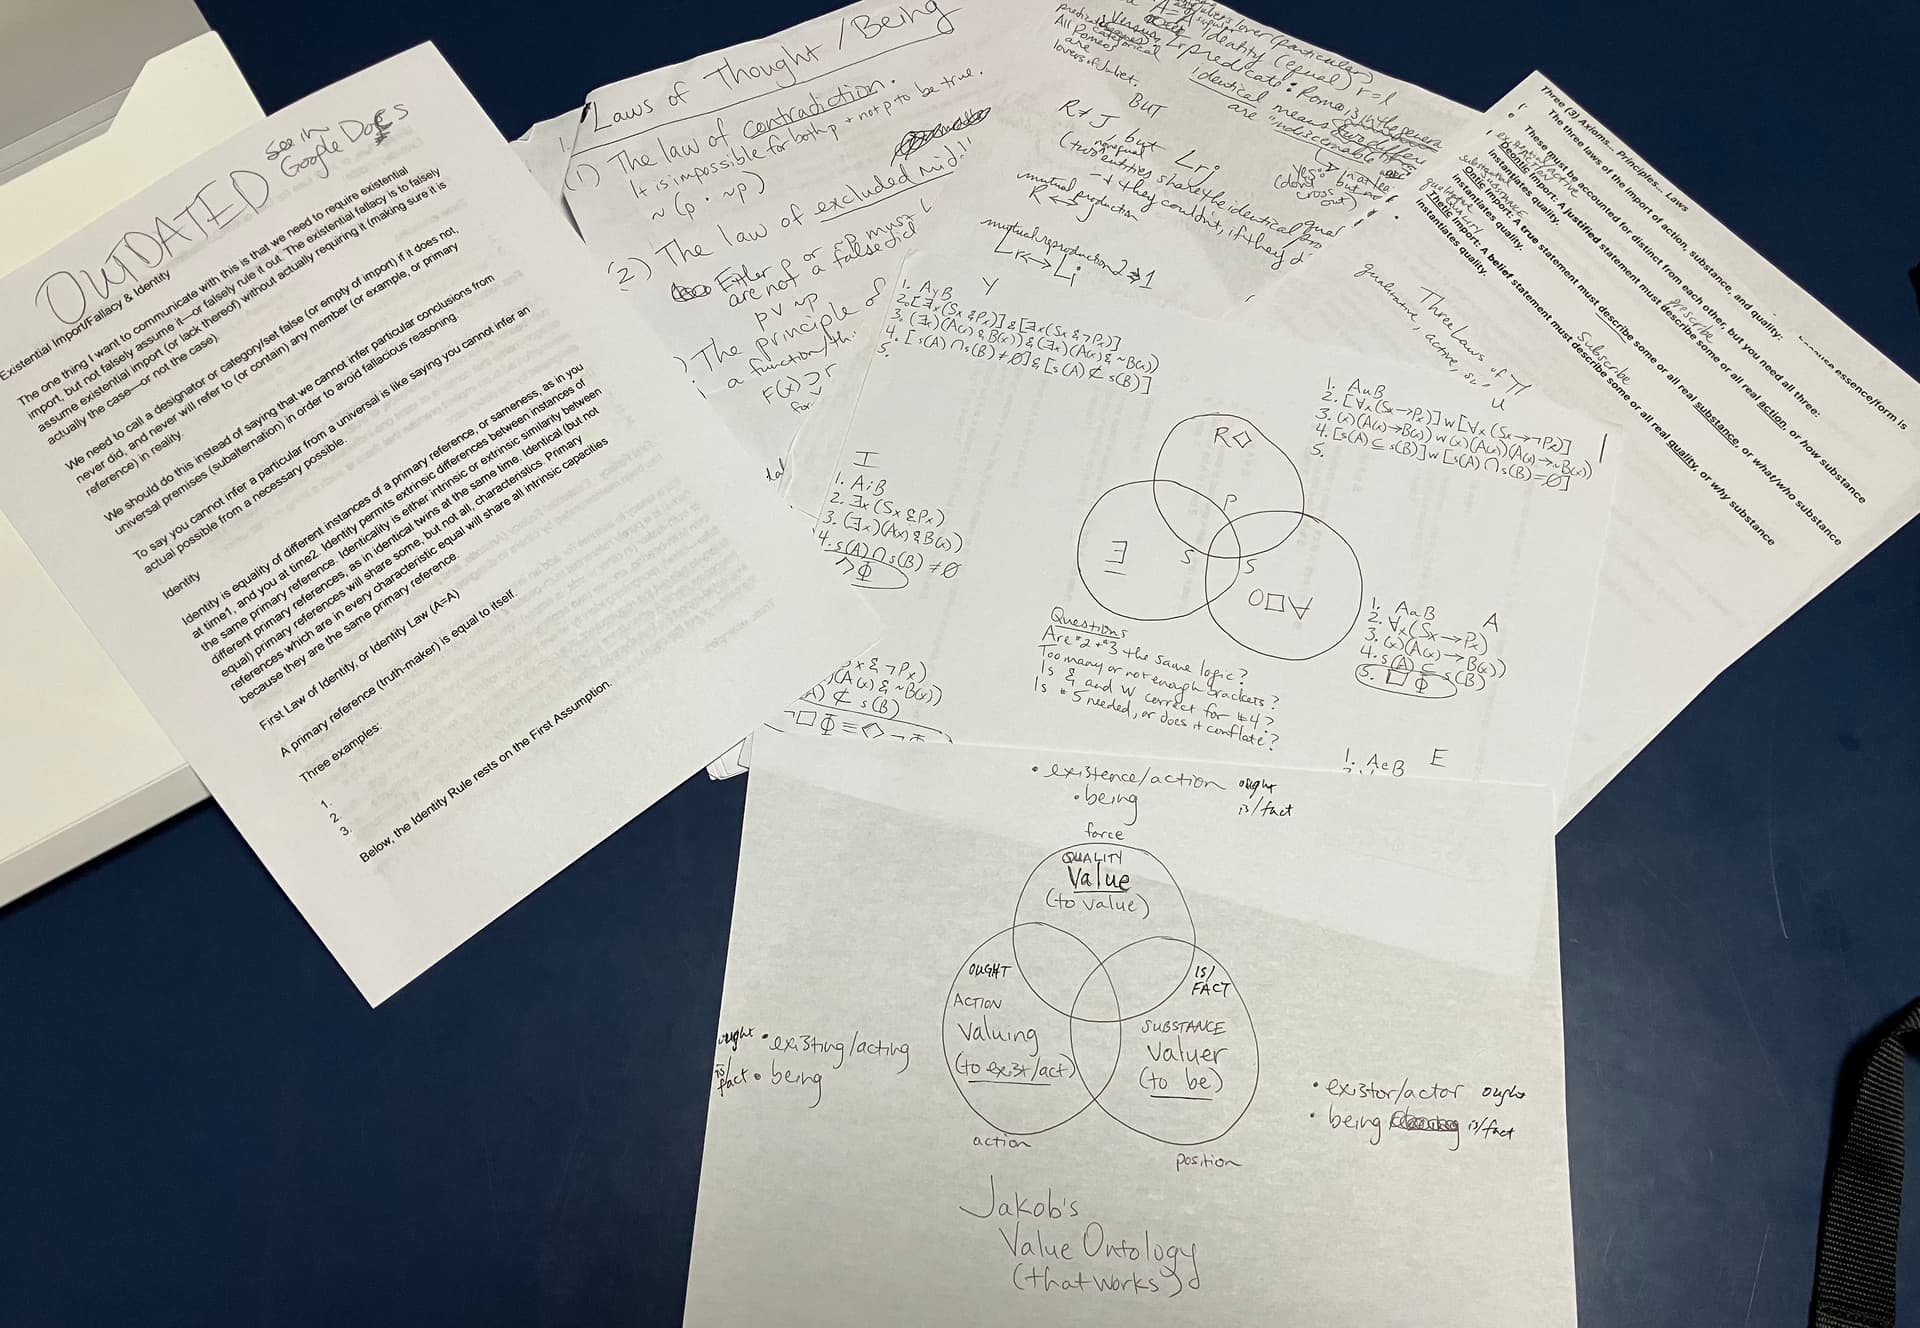 OUTDATED
see in
Google Docs
Existential Import/Fallacy & Identity
The one thing I want to communicate with this is that we need to require existential
import, but not falsely assume it—or falsely rule it out. The existential fallacy is to falsely
assume existential import (or lack thereof) without actually requiring it (making sure it is
actually the case—or not the case).
We need to call a designator or category/set false (or empty of import) if it does not,
never did, and never will refer to (or contain) any member (or example, or primary
reference) in reality.
We should do this instead of saying that we cannot infer particular conclusions from
universal premises (subalternation) in order to avoid fallacious reasoning.
To say you cannot infer a particular from a universal is like saying you cannot infer an
actual possible from a necessary possible.
Identity
Identity is equality of different instances of a primary reference, or sameness, as in you
at time1, and you at time2. Identity permits extrinsic differences between instances of
the same primary reference. Identicality is either intrinsic or extrinsic similarity between
different primary references, as in identical twins at the same time. Identical (but not
equal) primary references will share some, but not all, characteristics. Primary
references which are in every characteristic equal will share all intrinsic capacities
because they are the same primary reference.
First Law of Identity, or Identity Law (A=A)
A primary reference (truth-maker) is equal to itself.
Three examples:
1.
2.
3.
Below, the Identity Rule rests on the First Assumption.
Laws of Thought / Being
(1) The law of contradiction.
It is impossible for both p + not p to be true.
~(p · ~p)
(2) The law of excluded mid
Either p or ~p must
are not a false did
p v ~p
) The principle of
a function/thi
F(x) ⊃ r
for
All Romeos
are
lovers of Juliet.
BUT
identity (equal) r=l
predicate: Romeo is in the
identical means
are "indiscernable"
R ≠ J but Lrj
nonequal
(two entities share the identical
→ they couldn't, if they d
mutual production
R ↔ J
mutual reproduction 2→1
Lr ↔ Lj
Three (3) Axioms... Principles... Laws
The three laws of the import of action, substance, and quality:
These must be accounted for distinct from each other, but you need all three:
Deontic Import: A justified statement must describe some or all real action, or how substance
instantiates quality.
Ontic Import: A true statement must describe some or all real substance, or what/who substance
instantiates quality.
Thetic Import: A belief statement must describe some or all real quality, or why substance
instantiates quality.
Prescribe
Subscribe
Three Laws of
qualitative, active, su
Y
1. AyB
2. [∃x(Sx & Px)] & [∃x(Sx & ¬Px)]
3. (∃x)(A(x) & B(x)) & (∃x)(A(x) & ~B(x))
4. [s(A) ∩ s(B) ≠ ∅] & [s(A) ⊄ s(B)]
5.
U
1. AuB
2. [∀x(Sx→Px)] w [∀x(Sx→¬Px)]
3. (x)(A(x)→B(x)) w (x)(A(x)→~B(x))
4. [s(A) ⊆ s(B)] w [s(A) ∩ s(B) = ∅]
5.
I
1. AiB
2. ∃x(Sx & Px)
3. (∃x)(A(x) & B(x))
4. s(A) ∩ s(B) ≠ ∅
R◇
P
∃
S
S
O□∀
A
1. AaB
2. ∀x(Sx→Px)
3. (x)(A(x)→B(x))
4. s(A) ⊆ s(B)
5. □Φ
Questions
Are #2 + #3 the same logic?
Too many or not enough brackets?
Is & and w correct for #4?
Is #5 needed, or does it conflate?
x & ¬Px)
(A(x) & ~B(x))
A) ⊄ s(B)
¬□Φ≡◇¬Φ
E
1. AeB
• existence/action ought
• being is/fact
force
QUALITY
Value
(to value)
OUGHT
ACTION
Valuing
(to exist/act)
IS/
FACT
SUBSTANCE
Valuer
(to be)
ought • existing/acting
is/
fact • being
• existor/actor ought
• being is/fact
action
position
Jakob's
Value Ontology
(that works)